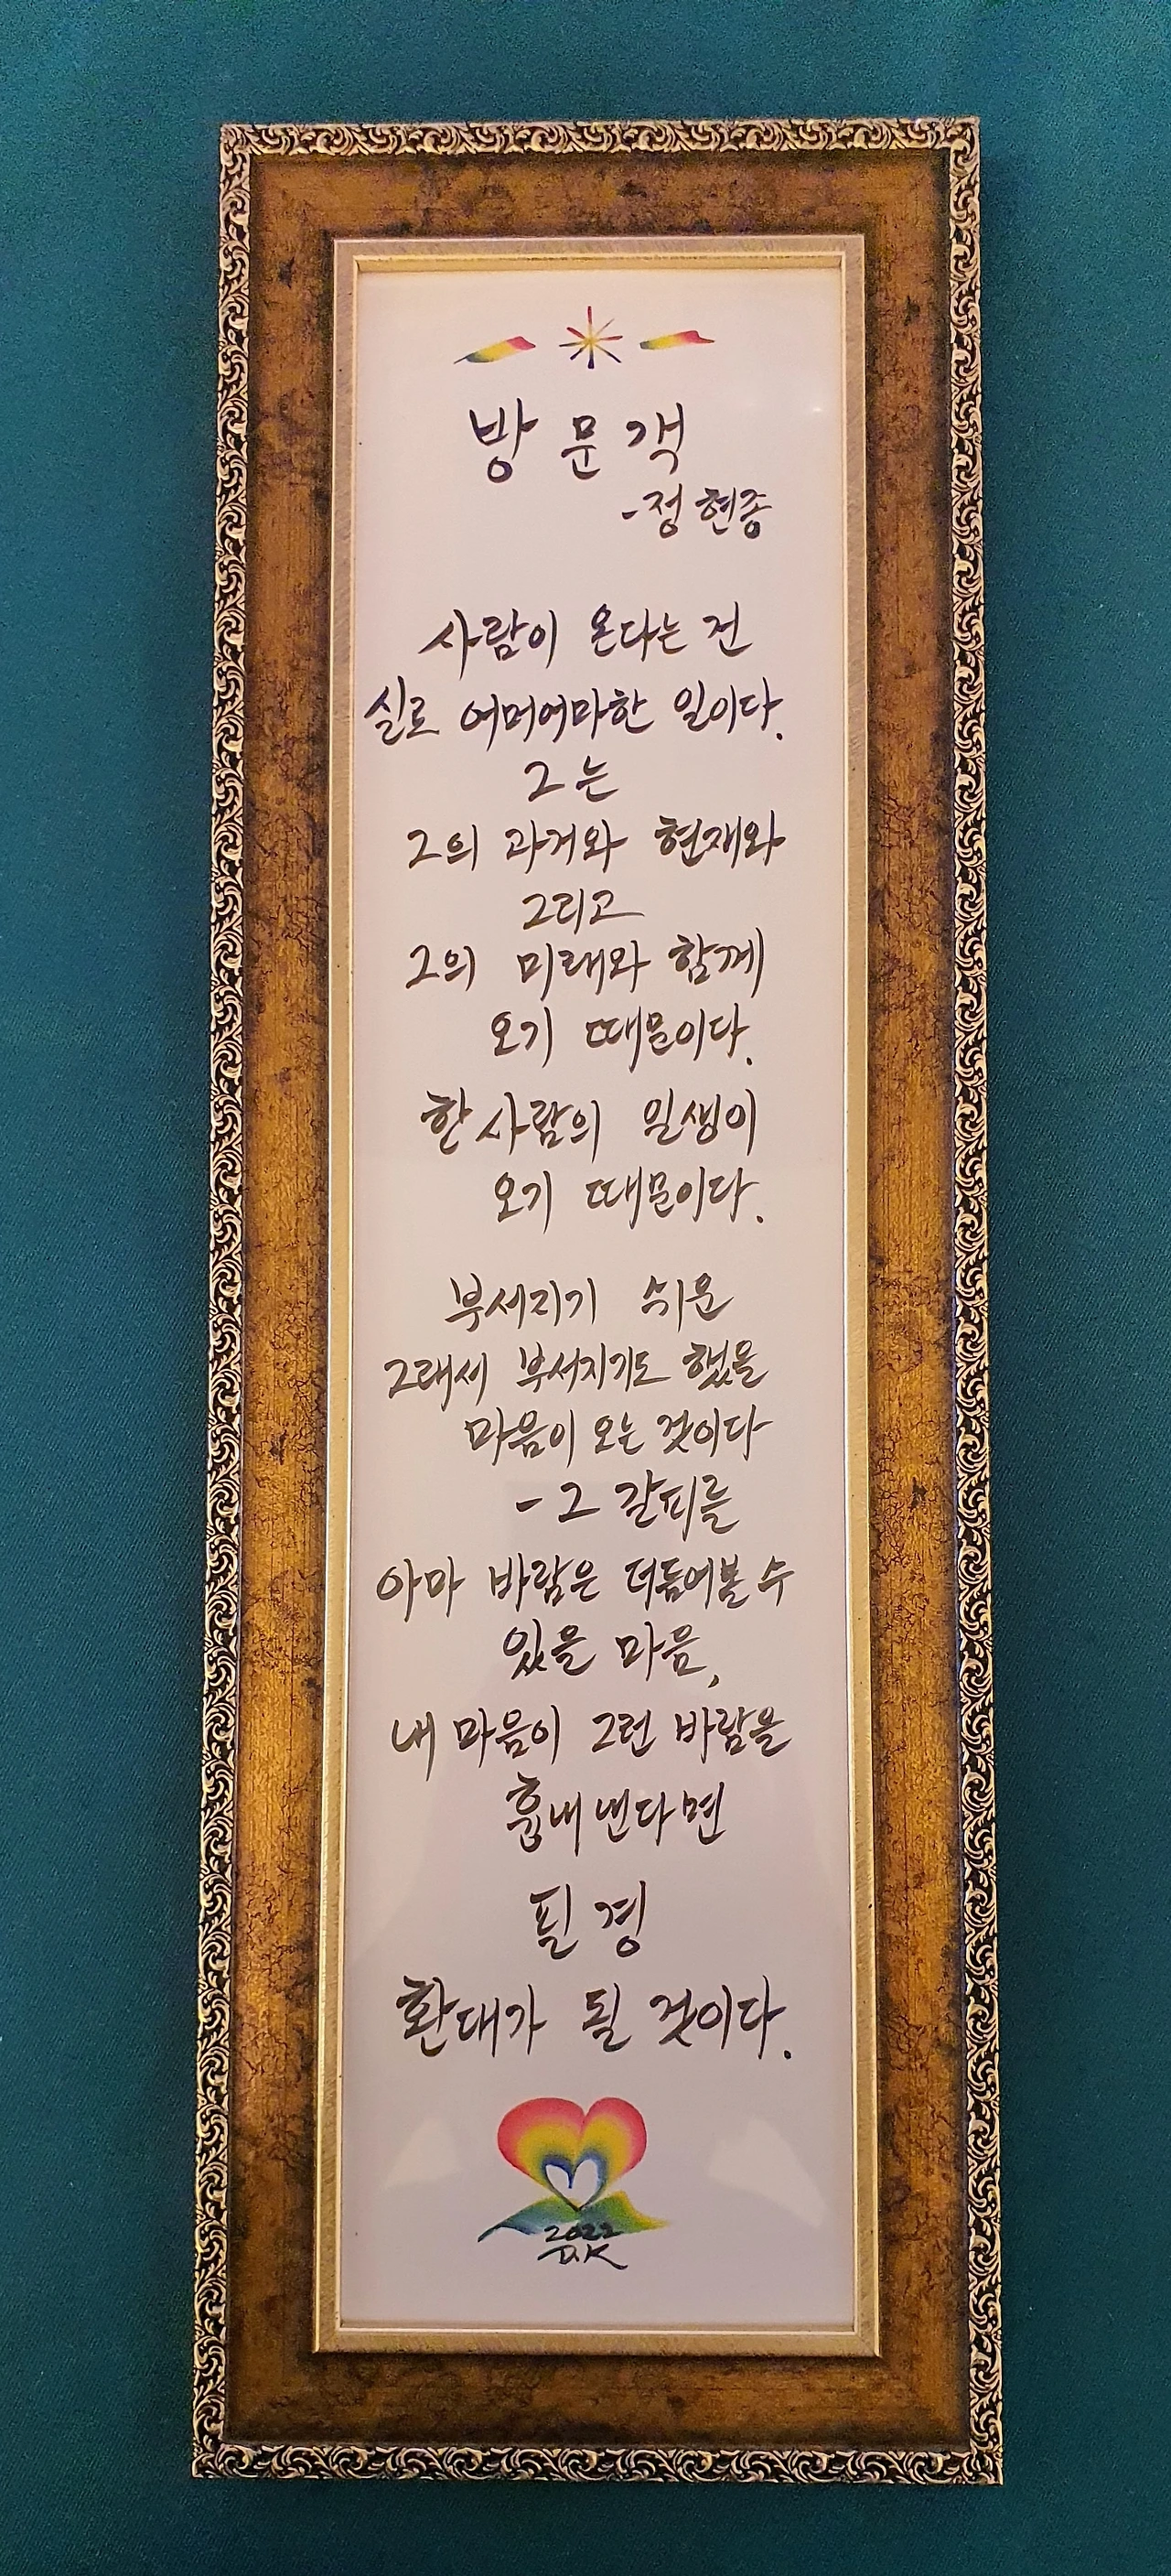 방문객
-정현종
사람이 온다는 건
실로 어머어마한 일이다.
그는
그의 과거와 현재와
그리고
그의 미래와 함께
오기 때문이다.
한 사람의 일생이
오기 때문이다.
부서지기 쉬운
그래서 부서지기도 했을
마음이 오는 것이다
- 그 갈피를
아마 바람은 더듬어볼 수
있을 마음,
내 마음이 그런 바람을
흉내 낸다면
필경
환대가 될 것이다.
2022